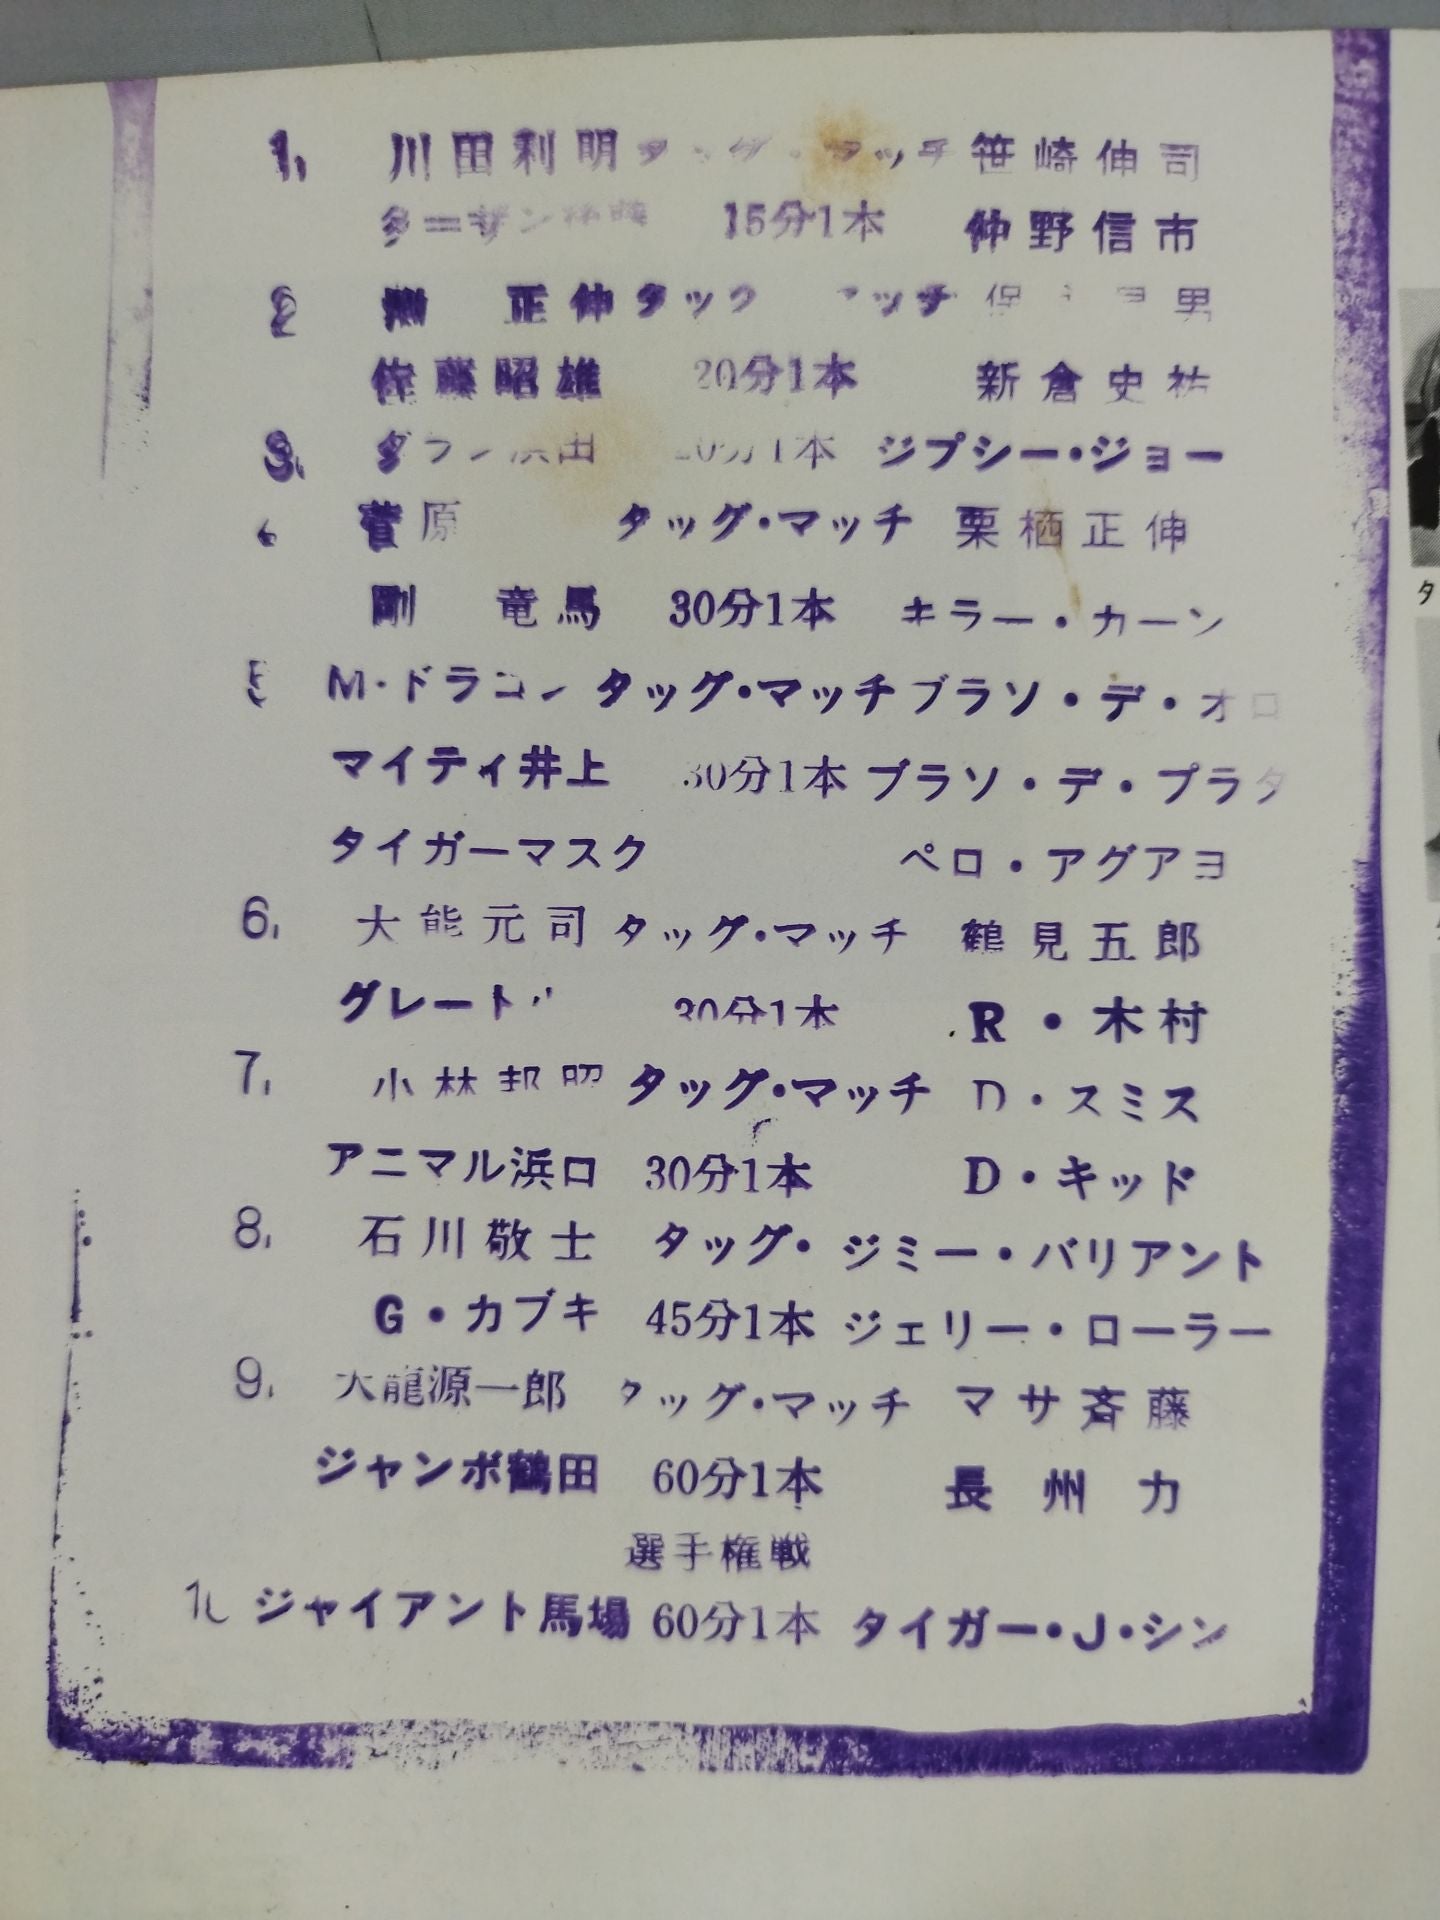 1. 川田利明 タッグ・マッチ 笹崎伸司
ターザン後藤 15分1本 仲野信市
2 淵 正伸 タッグ マッチ 男
佐藤昭雄 20分1本 新倉史祐
3. 浜田 20分1本 ジプシー・ジョー
菅原 タッグ・マッチ 栗栖正伸
剛 竜馬 30分1本 キラー・カーン
5 M・ドラゴン タッグ・マッチ ブラソ・デ・オロ
マイティ井上 30分1本 ブラソ・デ・プラタ
タイガーマスク ペロ・アグアヨ
6. 大熊元司 タッグ・マッチ 鶴見五郎
グレート 30分1本 R・木村
7. 小林邦昭 タッグ・マッチ D・スミス
アニマル浜口 30分1本 D・キッド
8. 石川敬士 タッグ・ ジミー・バリアント
G・カブキ 45分1本 ジェリー・ローラー
9. 天龍源一郎 タッグ・マッチ マサ斉藤
ジャンボ鶴田 60分1本 長州力
選手権戦
10 ジャイアント馬場 60分1本 タイガー・J・シン
タ